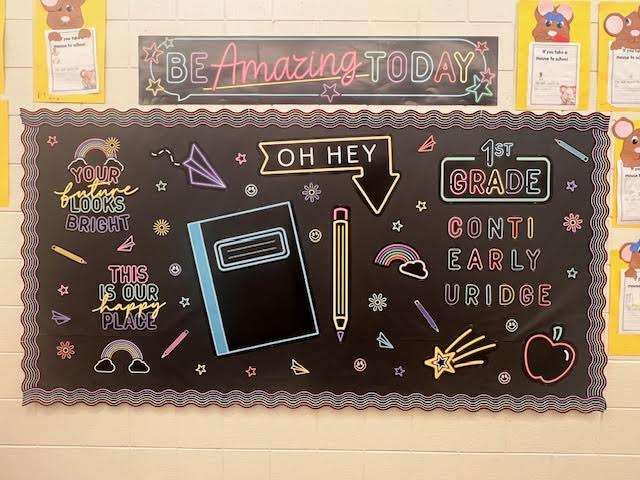 BE Amazing TODAY
If you take a
mouse to school
If you take a
mouse to school
YOUR
future
LOOKS
BRIGHT
THIS
IS OUR
happy
PLACE
OH HEY
1ST
GRADE
CONTI
EARLY
URIDGE